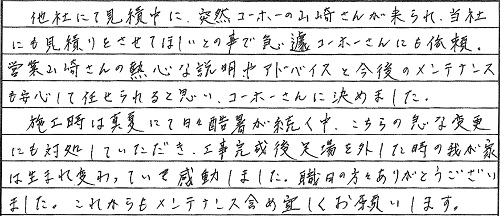 他社にて見積中に、突然コーホーの山崎さんが来られ、当社
にも見積りをさせてほしいとの事で急遽コーホーさんにも依頼。
営業山崎さんの熱心な説明やアドバイスと今後のメンテナンス
も安心して任せられると思い、コーホーさんに決めました。
施工時は真夏にて日々酷暑が続く中、こちらの急な変更
にも対処していただき、工事完成後足場を外した時の我が家
は生まれ変わっていて感動しました。職人の方々ありがとうござい
ました。これからもメンテナンス含め宜しくお願いします。